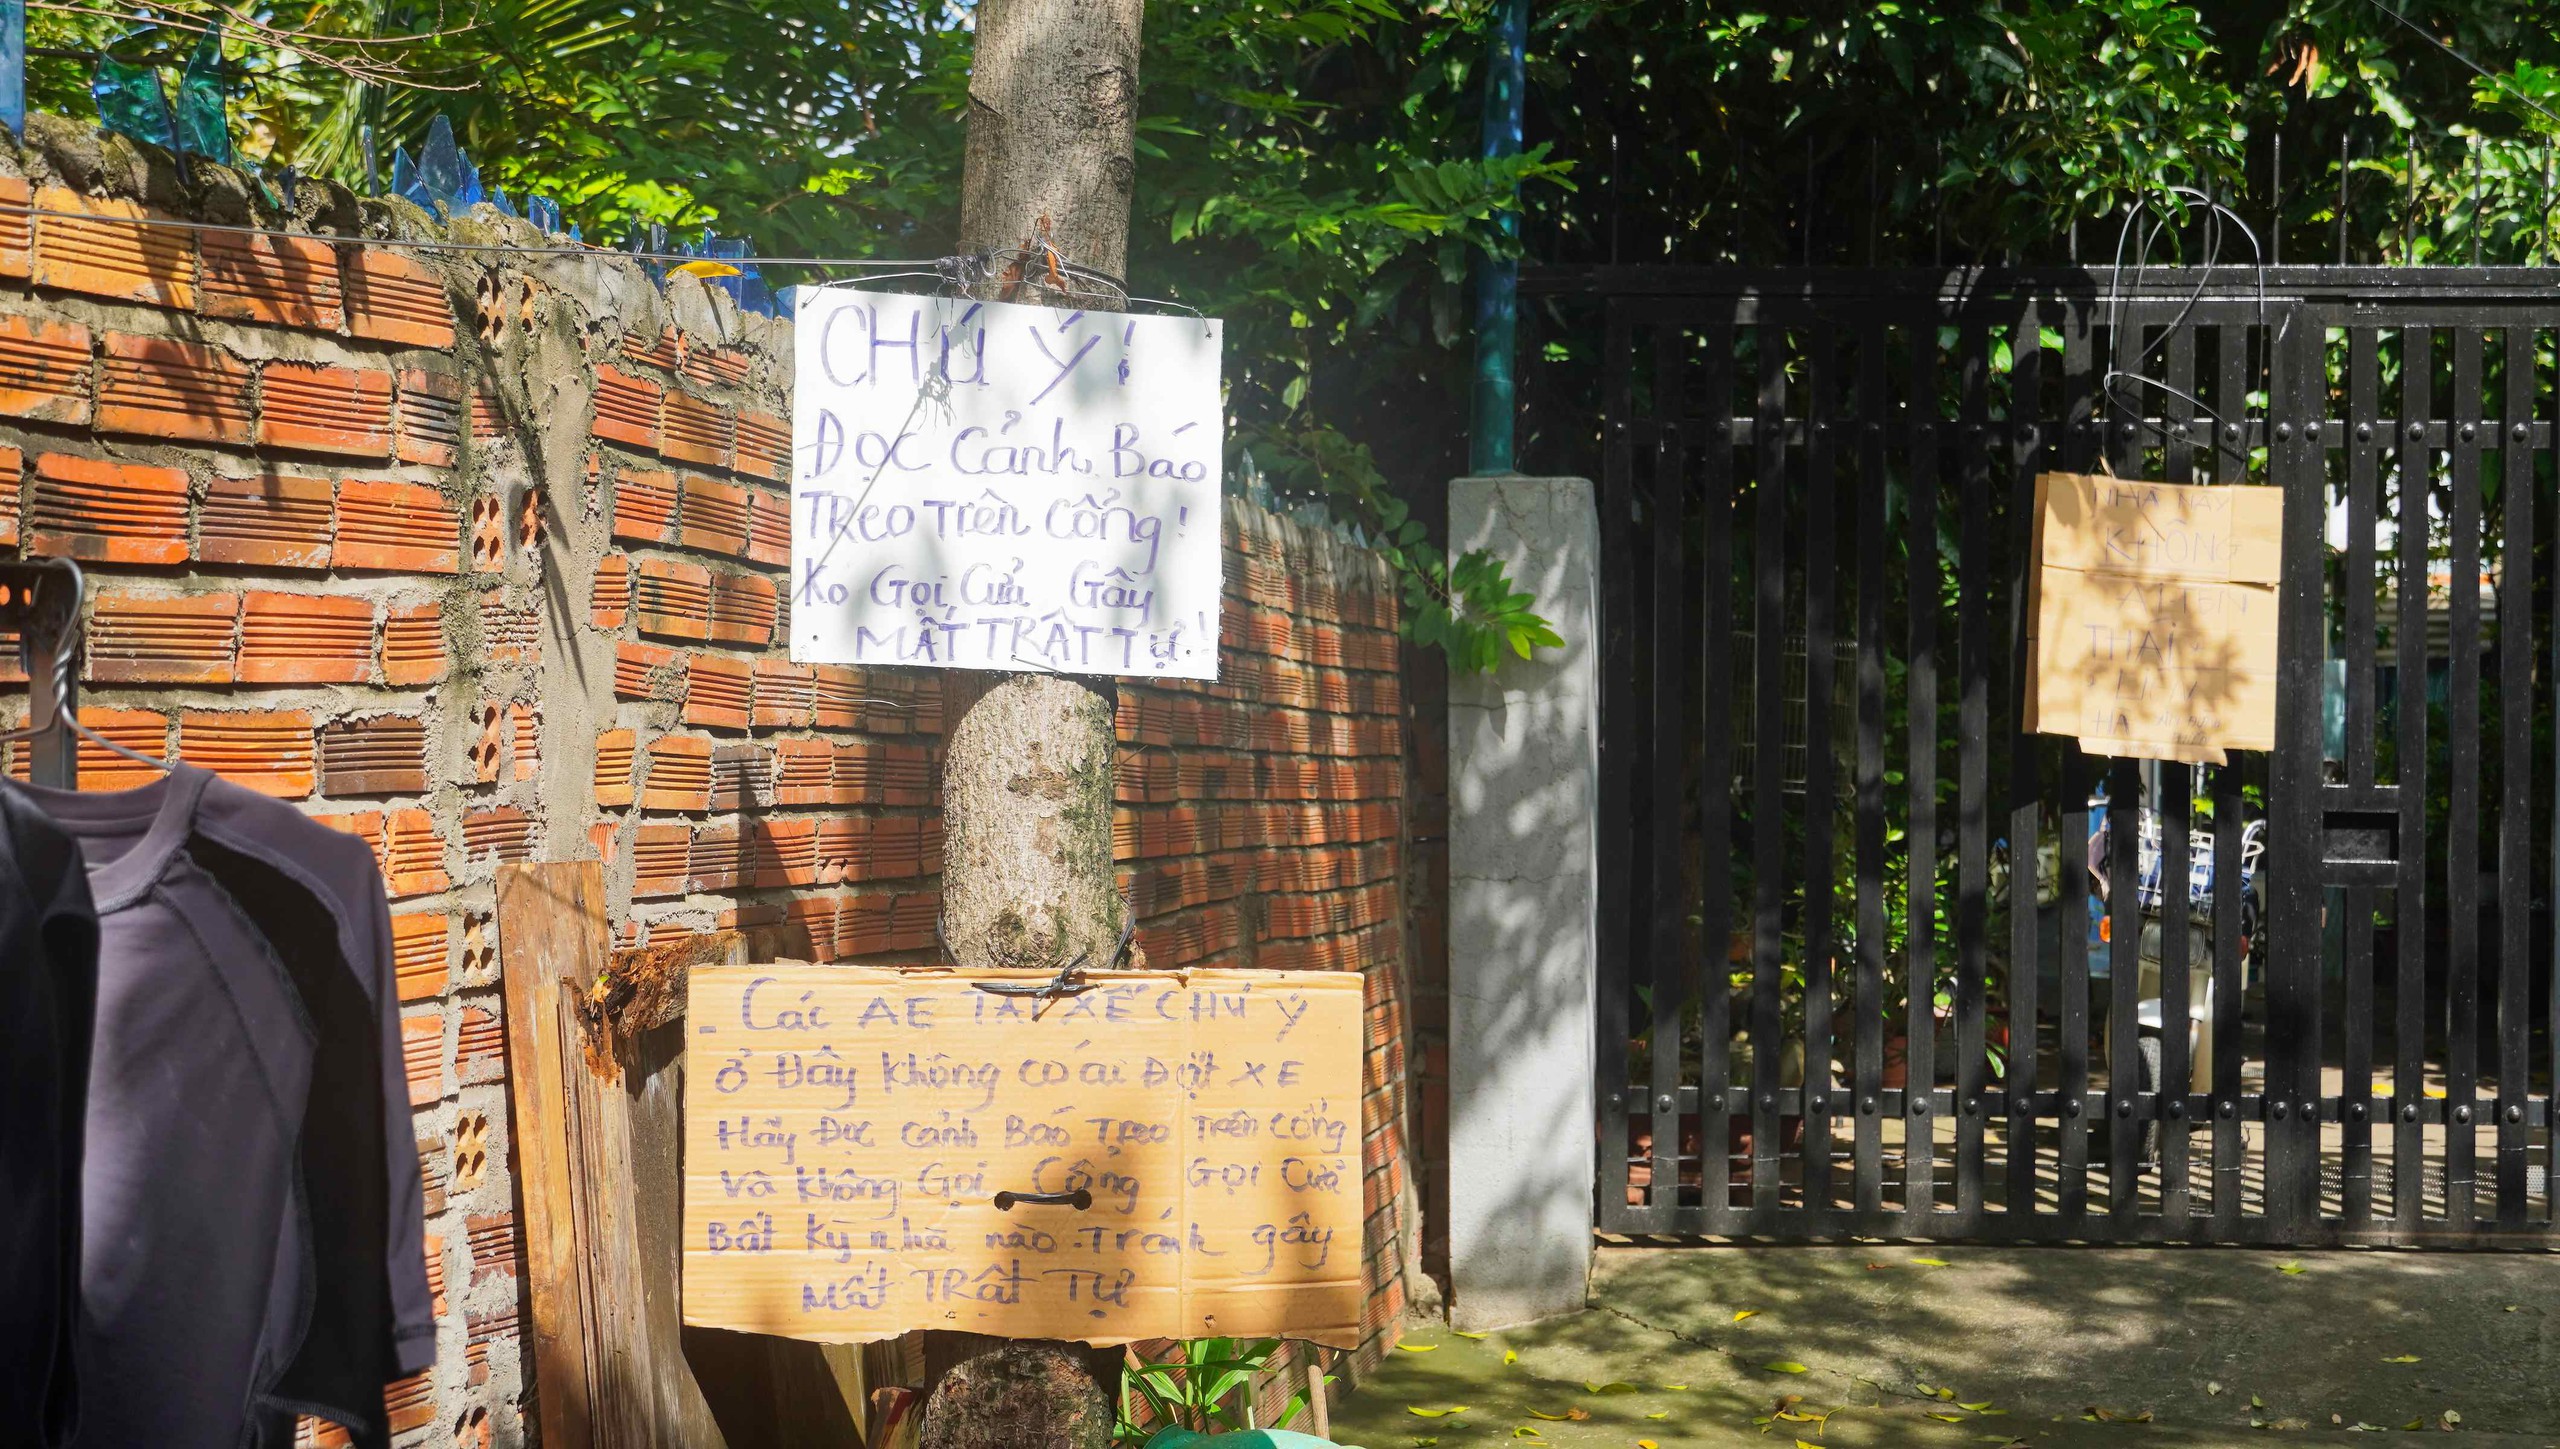 CHÚ Ý!
Đọc Cảnh Báo
TReo Trên Cổng!
Ko Gọi Cửa Gây
MẤT TRẬT TỰ!
- Các AE TÀI XẾ CHÚ Ý
Ở Đây không có ai Đặt XE
Hãy Đọc cảnh Báo Treo Trên cổng
và không Gọi Cổng Gọi Cửa
Bất kỳ nhà nào Tránh gây
Mất TRật TỰ
NHÀ NÀY
KHÔNG
AI TÊN
THÁI
LINH
HÀ